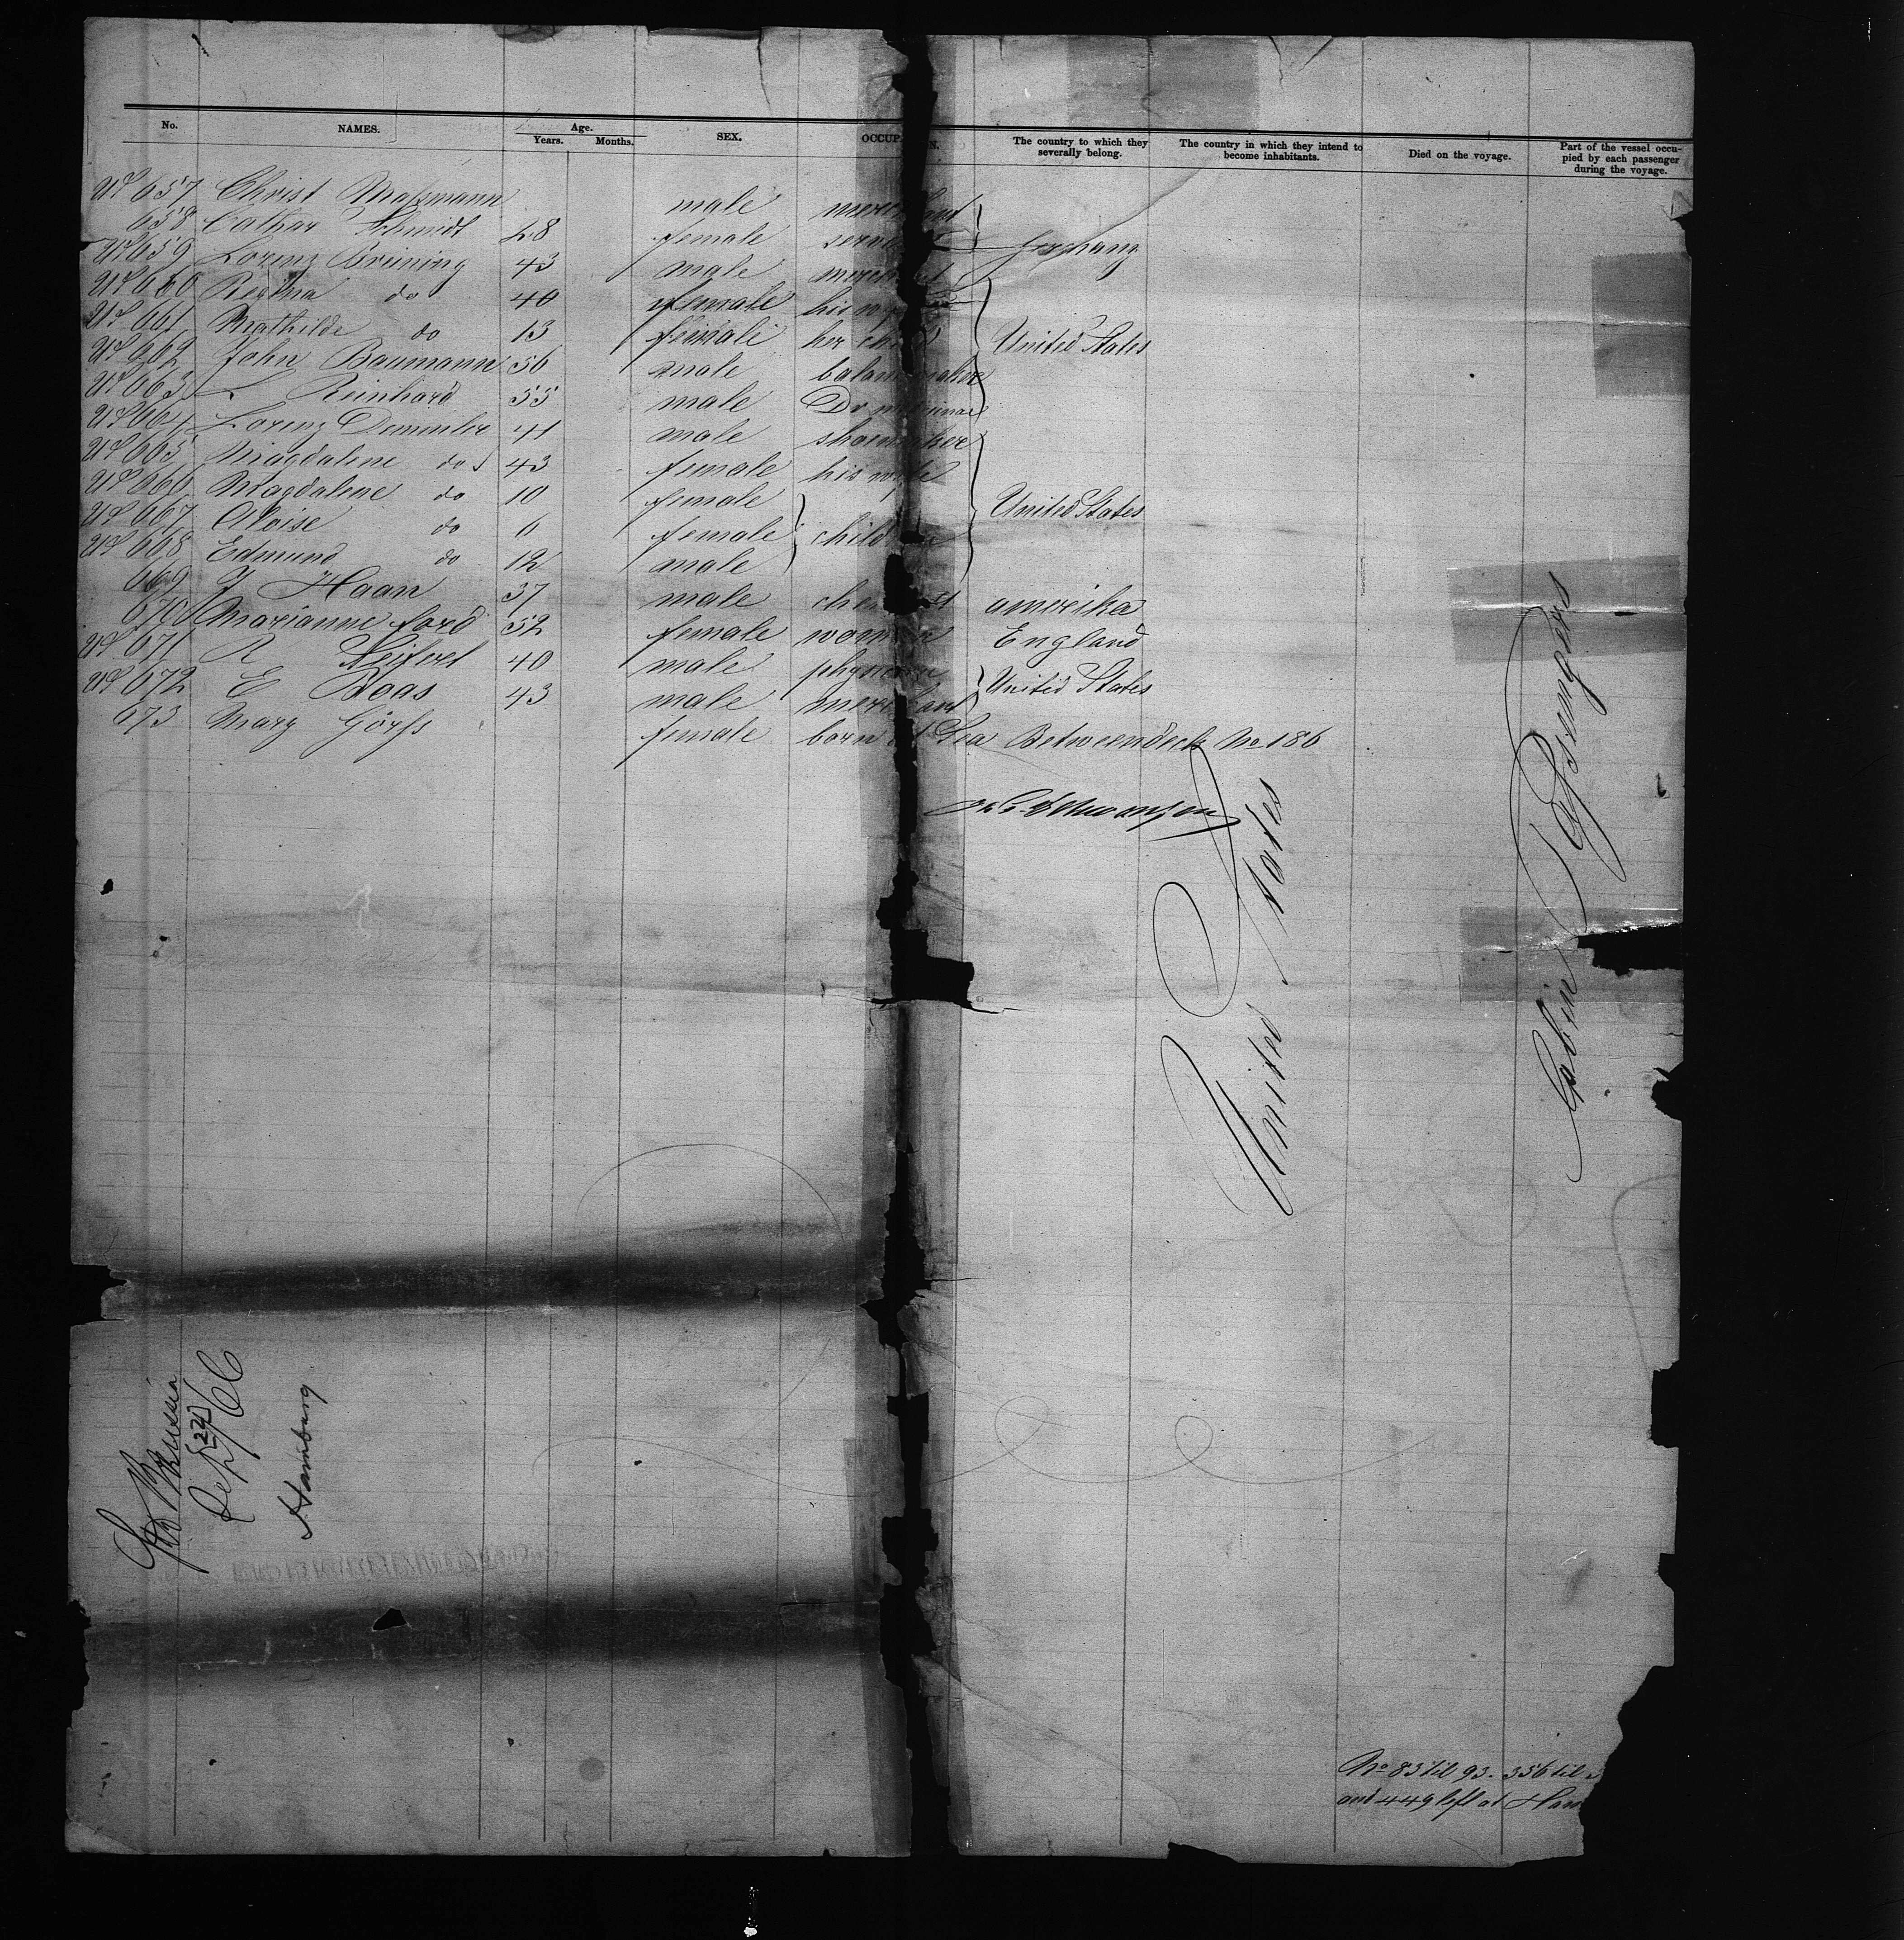 No. NAMES. Age. Years. Months. SEX. OCCUP N. The country to which they severally belong. The country in which they intend to become inhabitants. Died on the voyage. Part of the vessel occupied by each passenger during the voyage.
657 Christ Maßmann male merchant
658 Cathar Schmidt 28 female servant Germany
659 Lorenz Brining 43 male merchant
660 Regina do 40 female his wife
661 Mathilde do 13 female her child United States
662 John Baumann 56 male
663 Reinhard 55 male Dr
664 Lorenz 41 male shoemaker
665 Magdalene do 43 female his wife
666 Magdalene do 10 female United States
667 Aloise do 6 female children
668 Edmund do 12 male
669 J Haan 37 male amerika
670 Marianne ford 52 female woman England
671 R 40 male physician United States
672 E Boas 43 male merchant
673 Mary female born at Sea Betweendeck No 186
United States
Cabin Passengers
Russia
Sep 24/66
Hamburg
No 83 til 93. 356 til
and 449 left at Ham